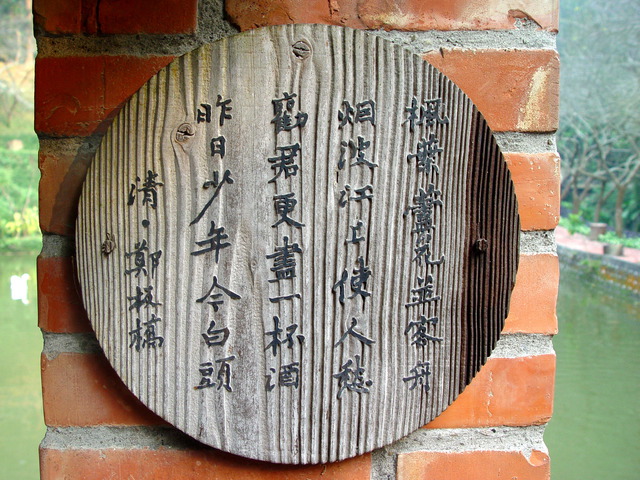 楓葉蘆花並客舟
烟波江上使人愁
勸君更盡一杯酒
昨日少年今白頭
清·鄭板橋